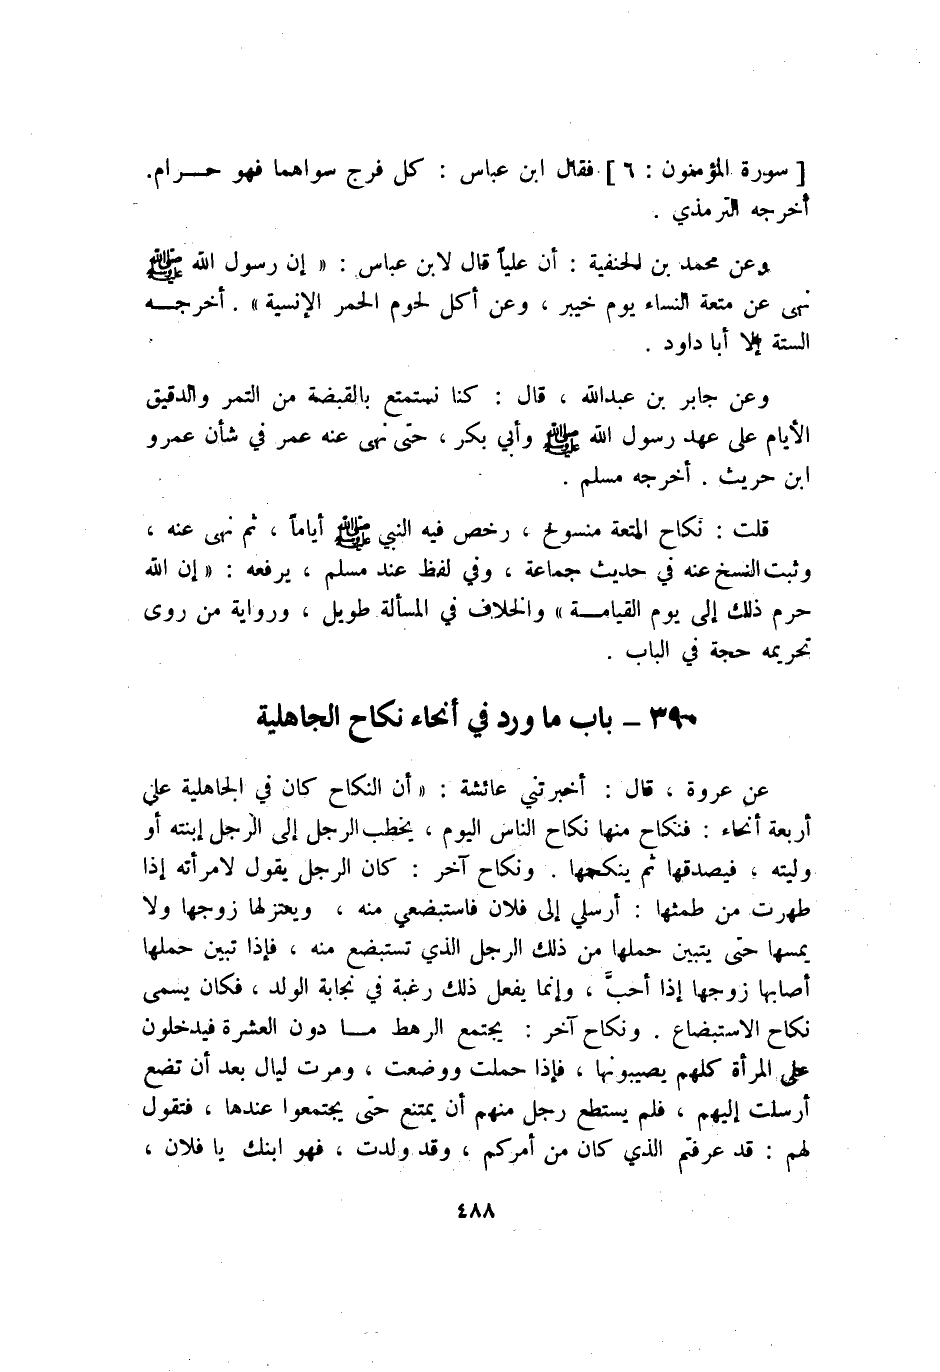 [ سورة المؤمنون : ٦ ] فقال ابن عباس : كل فرج سواهما فهو حـــرام.
أخرجه الترمذي .
وعن محمد بن الحنفية : أن علياً قال لابن عباس : « إن رسول الله ﷺ
نهى عن متعة النساء يوم خيبر ، وعن أكل لحوم الحمر الإنسية » . أخرجـــه
الستة إلا أبا داود .
وعن جابر بن عبدالله ، قال : كنا نستمتع بالقبضة من التمر والدقيق
الأيام على عهد رسول الله ﷺ وأبي بكر ، حتى نهى عنه عمر في شأن عمرو
ابن حريث . أخرجه مسلم .
قلت : نكاح المتعة منسوخ ، رخص فيه النبي ﷺ أياماً ، ثم نهى عنه ،
وثبت النسخ عنه في حديث جماعة ، وفي لفظ عند مسلم ، يرفعه : « إن الله
حرم ذلك إلى يوم القيامـــة » والخلاف في المسألة طويل ، ورواية من روى
تحريمه حجة في الباب .
٣٩٠ – باب ما ورد في أنحاء نكاح الجاهلية
عن عروة ، قال : أخبرتني عائشة : « أن النكاح كان في الجاهلية على
أربعة أنحاء : فنكاح منها نكاح الناس اليوم ، يخطب الرجل إلى الرجل إبنته أو
وليته ، فيصدقها ثم ينكحها . ونكاح آخر : كان الرجل يقول لامرأته إذا
طهرت من طمثها : أرسلي إلى فلان فاستبضعي منه ، ويعتزلها زوجها ولا
يمسها حتى يتبين حملها من ذلك الرجل الذي تستبضع منه ، فإذا تبين حملها
أصابها زوجها إذا أحبَّ ، وإنما يفعل ذلك رغبة في نجابة الولد ، فكان يسمى
نكاح الاستبضاع . ونكاح آخر : يجتمع الرهط مـــا دون العشرة فيدخلون
على المرأة كلهم يصيبونها ، فإذا حملت ووضعت ، ومرت ليال بعد أن تضع
أرسلت إليهم ، فلم يستطع رجل منهم أن يمتنع حتى يجتمعوا عندها ، فتقول
لهم : قد عرفتم الذي كان من أمركم ، وقد ولدت ، فهو ابنك يا فلان ،
٤٨٨